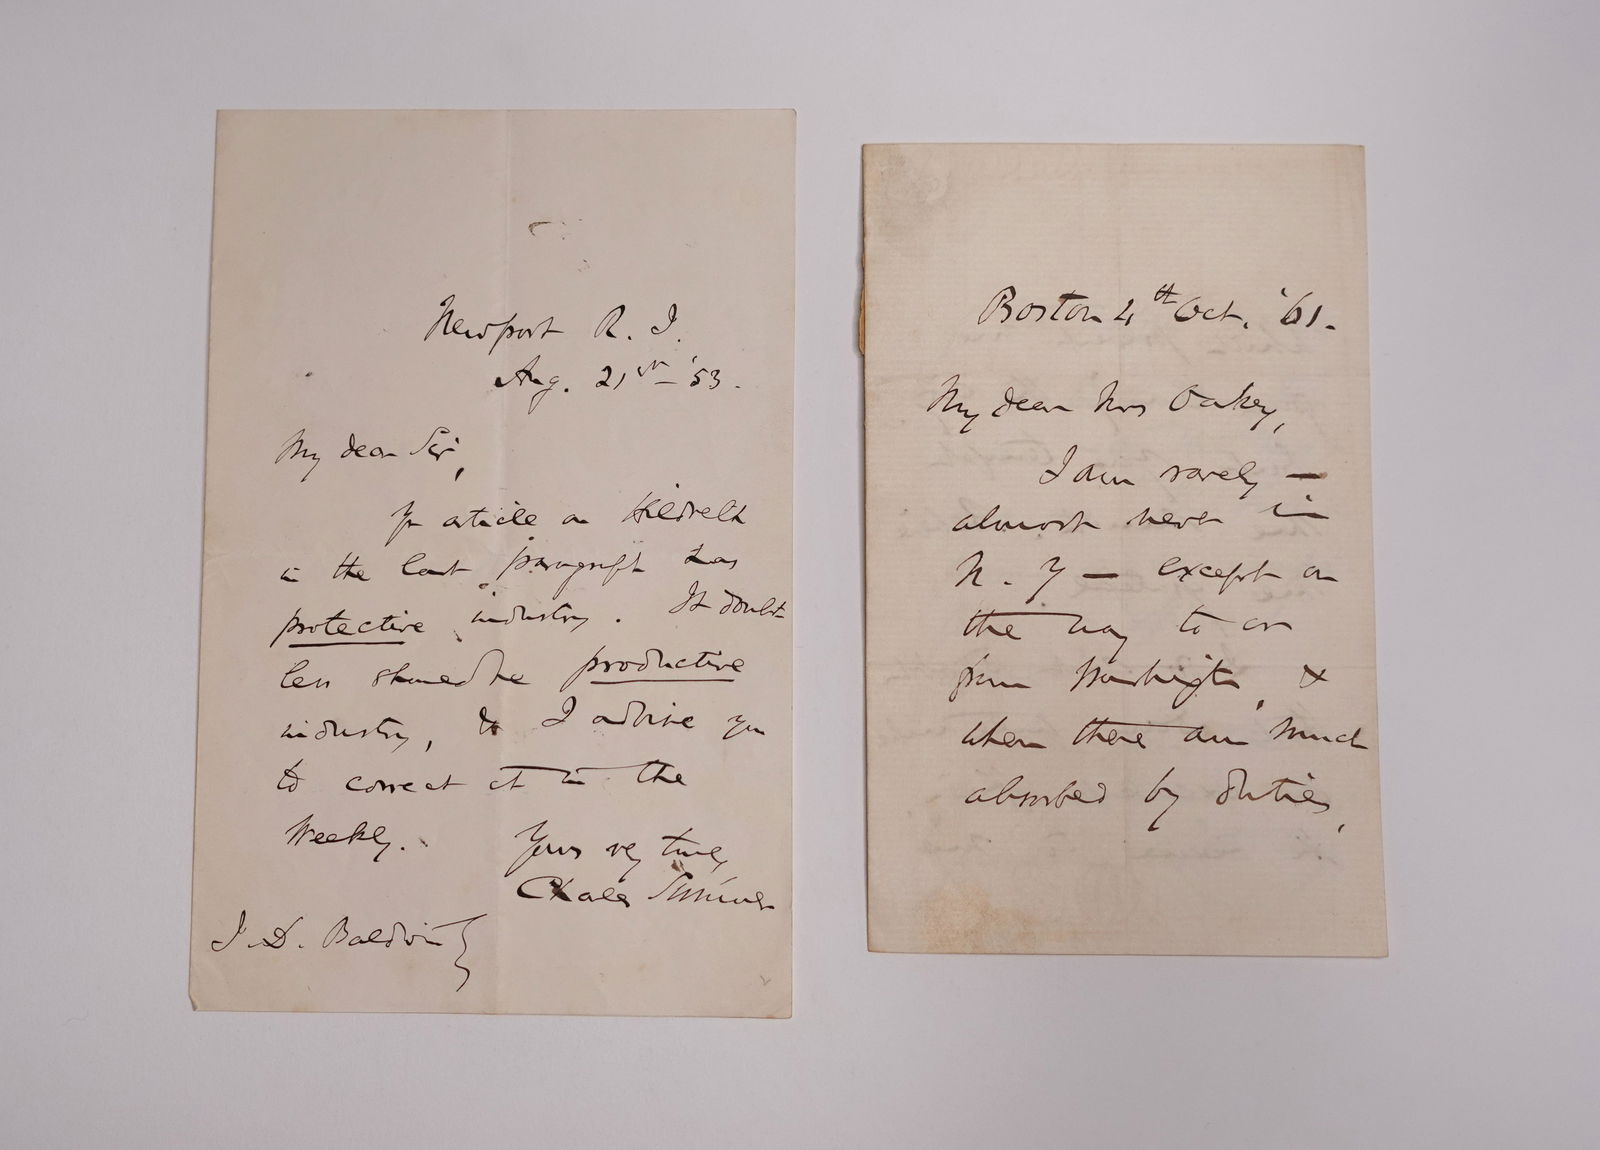 Newport R. I.
Aug. 21st – '53.
My dear Sir,
Yr article on Hildreth
in the last paragraph has
protective industry. It doubt-
less should be productive
industry, & I advise you
to correct it in the
Weekly.
Yours vey truly,
Charles Sumner
J. D. Baldwin
Boston 4th Oct. '61.
My dear Mrs Oakey,
I am rarely —
almost never in
N. Y — except on
the way to or
from Washington, &
when there am much
absorbed by duties,